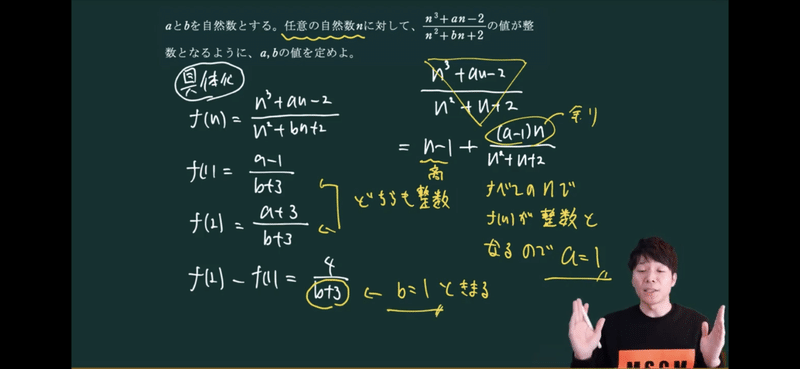 aとbを自然数とする。任意の自然数nに対して、(n³+an−2)/(n²+bn+2)の値が整
数となるように、a, bの値を定めよ。
具体化
f(n) = (n³+an−2)/(n²+bn+2)
f(1) = (a−1)/(b+3)
f(2) = (a+3)/(b+3)
どちらも整数
f(2) − f(1) = 4/(b+3) ← b=1 ときまる
(n³+an−2)/(n²+n+2)
= n−1 + (a−1)n/(n²+n+2)
余り
商
すべてのnで
f(n)が整数と
なるので a=1